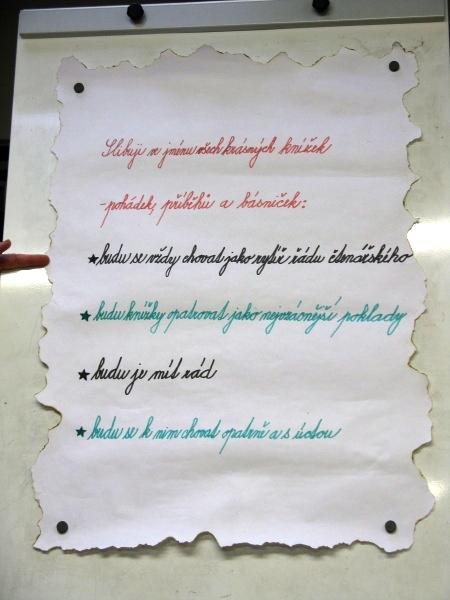 Slibuji ve jménu všech krásných knížek
-pohádek, příběhů a básniček:
★budu se vždy chovat jako rytíř řádu čtenářského
★budu knížky opatrovat jako nejvzácnější poklady
★budu je mít rád
★budu se k nim chovat opatrně a s úctou